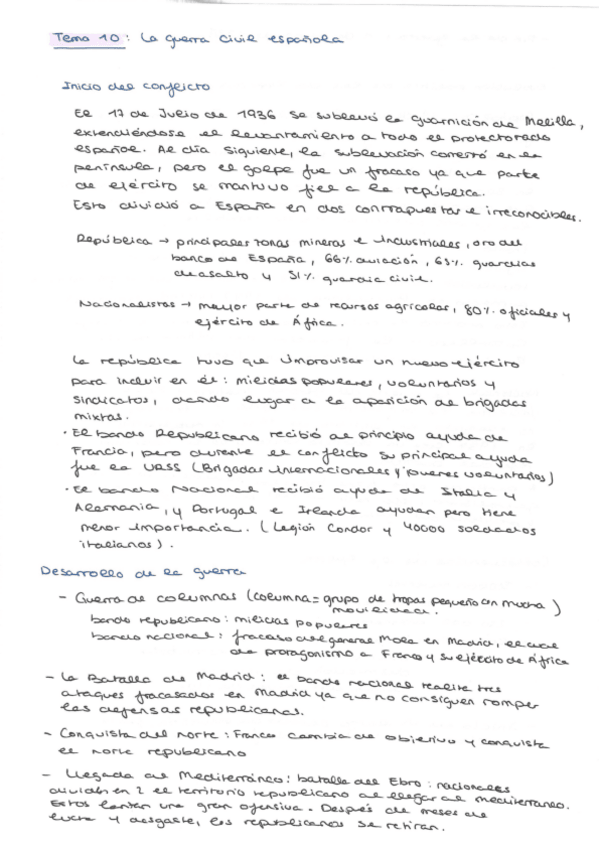 Tema 10: La guerra civil española
Inicio del conflicto
El 17 de Julio de 1936 se sublevó la guarnición de Melilla,
extendiéndose el levantamiento a todo el protectorado
español. Al día siguiente, la sublevación comenzó en la
península, pero el golpe fue un fracaso ya que parte
de ejército se mantuvo fiel a la república.
Esto dividió a España en dos contrapuestas e irreconocibles.
República → principales zonas mineras e industriales, oro del
banco de España, 66% aviación, 65% guardias
de asalto y 51% guardia civil.
Nacionalistas → mayor parte de recursos agrícolas, 80% oficiales y
ejército de África.
La república tuvo que improvisar un nuevo ejército
para incluir en él: milicias populares, voluntarios y
sindicatos, dando lugar a la aparición de brigadas
mixtas.
· El bando Republicano recibió al principio ayuda de
Francia, pero durante el conflicto su principal ayuda
fue la URSS (Brigadas Internacionales y voluntarios)
· El bando Nacional recibió ayuda de Italia y
Alemania, y Portugal e Irlanda ayudan pero tiene
menor importancia. (Legión Condor y 40000 soldados
italianos).
Desarrollo de la guerra
- Guerra de columnas (columna = grupo de tropas pequeño con mucha
movilidad.)
bando republicano: milicias populares
bando nacional: fracaso del general Mola en Madrid, el cual
da protagonismo a Franco y su ejército de África
- La Batalla de Madrid: el bando nacional realiza tres
ataques fracasados en Madrid ya que no consiguen romper
las defensas republicanas.
- Conquista del norte: Franco cambia de objetivo y conquista
el norte republicano
- Llegada al Mediterráneo: batalla del Ebro: nacionales
dividen en 2 el territorio republicano al llegar al mediterráneo.
Estos lanzan una gran ofensiva. Después de meses de
lucha y desgaste, los republicanos se retiran.